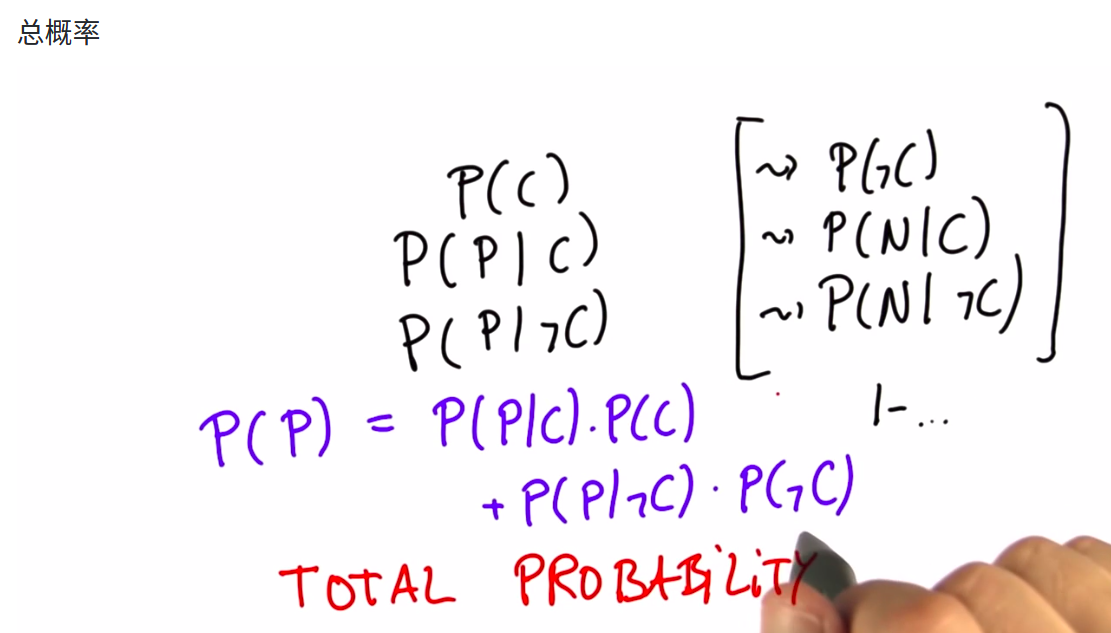 总概率
P(C)
P(P|C)
P(P|¬C)
⇝ P(¬C)
⇝ P(N|C)
⇝ P(N|¬C)
1-...
P(P) = P(P|C).P(C)
+ P(P|¬C) · P(¬C)
TOTAL PROBABILITY